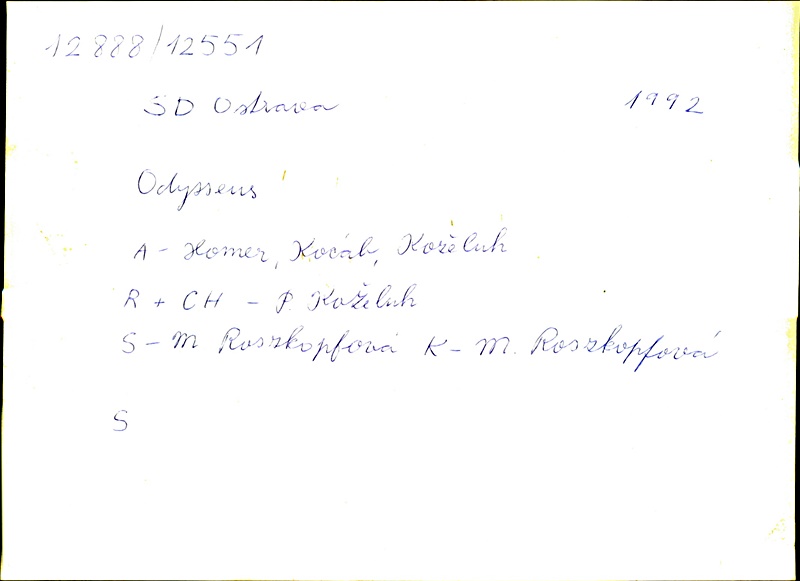 12888/12551
SD Ostrava 1992
Odysseus
A - Homer, Kocáb, Koželuh
R + CH - P. Koželuh
S - M Roszkopfová K - M. Roszkopfová
S